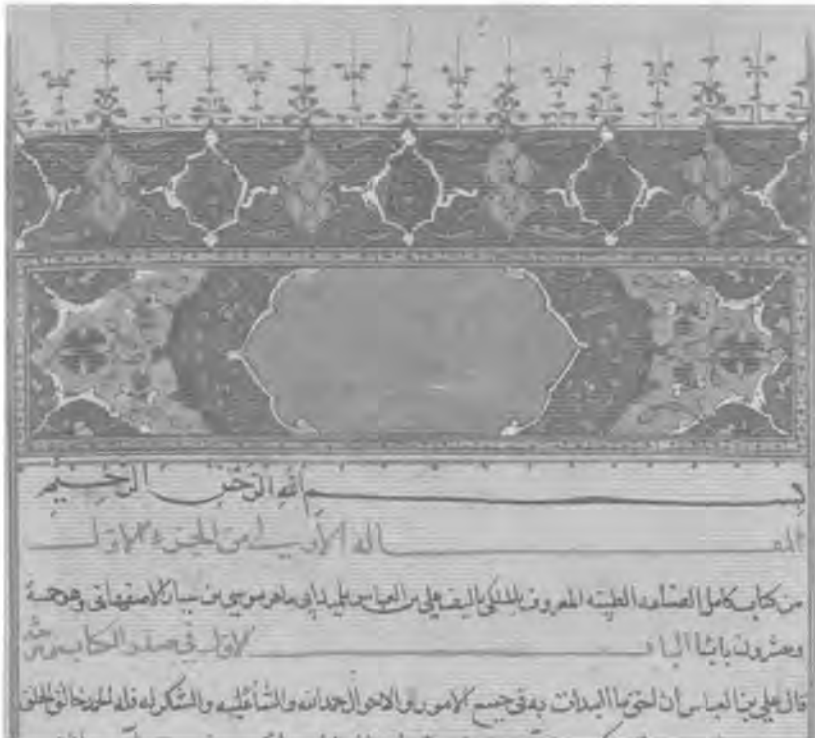 بسم الله الرحمن الرحيم
المقالة الأولى من الجزء الاول
من كتاب كامل الصناعه الطبيه المعروف بالملكي تاليف علي بن العباس تلميذ ابي ماهر موسى بن سيار الاصفهاني وهو خمسة
وعشرون بابا الباب الاول في صدر الكتاب
قال علي بن العباس ان احق ما ابتدات به في جميع الامور والاحوال حمد الله والثنا عليه والشكر له فله الحمد خالق الخلق